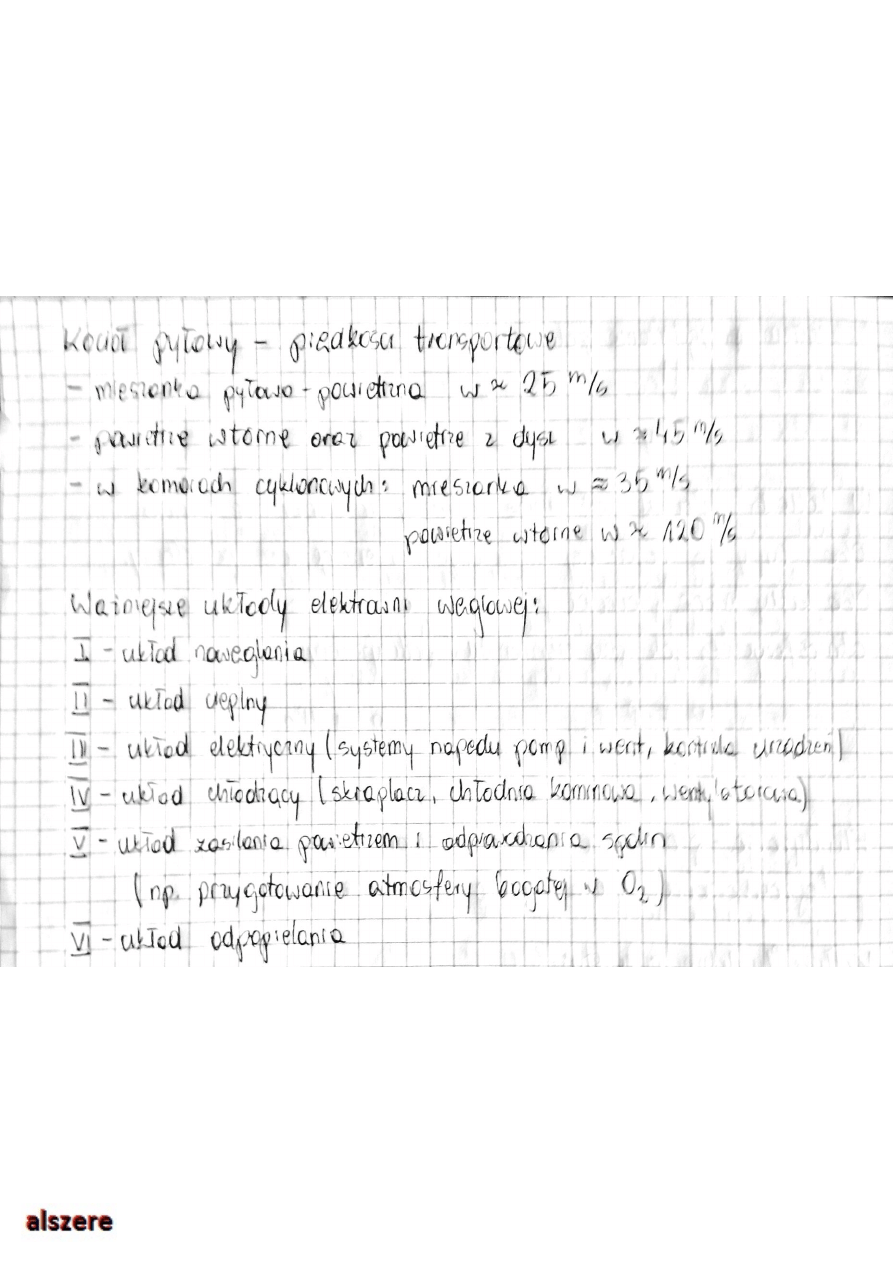 Kocioł pyłowy - prędkości transportowe
- mieszanka pyłowo-powietrzna w ≈ 25 m/s
- powietrze wtórne oraz powietrze z dysz w ≈ 45 m/s
- w komorach cyklonowych: mieszanka w ≈ 35 m/s
powietrze wtórne w ≈ 120 m/s
Ważniejsze układy elektrowni węglowej:
I - układ nawęglania
II - układ cieplny
III - układ elektryczny (systemy napędu pomp i went, kontrola urządzeń)
IV - układ chłodzący (skraplacz, chłodnia kominowa, wentylatorowa)
V - układ zasilania powietrzem i odprowadzania spalin
(np. przygotowanie atmosfery bogatej w O₂)
VI - układ odpopielania
alszere